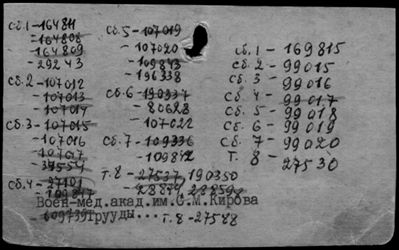 сб.1-164811
-164808
-164809
-29243
сб.2-107012
-107013
-107014
сб.3-107015
-107016
-107017
34554
сб.4-27101
сб.5-107019
-107020
-109843
-196338
сб.6-190337
-80628
-107022
сб.7-109336
-109842
т.8-27537 190350
-28879 28859
сб.1-169815
сб.2-99015
сб.3-99016
сб.4-99017
сб.5-99018
сб.6-99019
сб.7-99020
т.8-27530
Воен-мед.акад.им.С.М.Кирова
Труды... т.8-27588